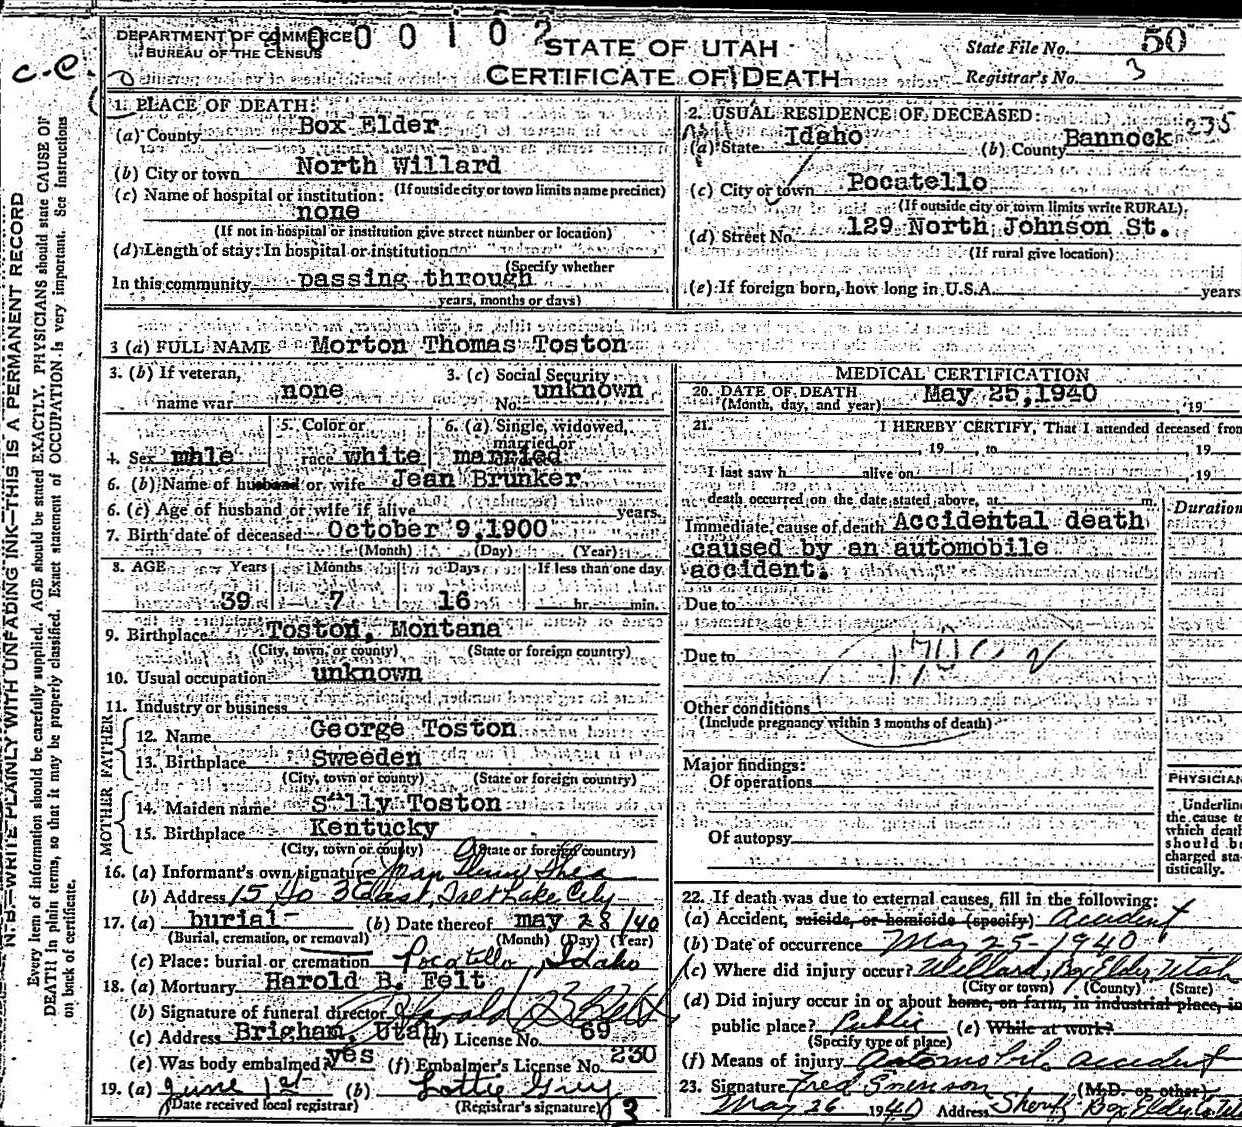 DEPARTMENT OF COMMERCE
BUREAU OF THE CENSUS
400010?
STATE OF UTAH
CERTIFICATE OF DEATH
State File No. 50
Registrar's No. 3
C.C.
N. B.—WRITE PLAINLY WITH UNFADING INK—THIS IS A PERMANENT RECORD
Every item of information should be carefully supplied. AGE should be stated EXACTLY. PHYSICIANS should state CAUSE OF
DEATH in plain terms, so that it may be properly classified. Exact statement of OCCUPATION is very important. See instructions
on back of certificate.
1. PLACE OF DEATH:
(a) County Box Elder
(b) City or town North Willard
(If outside city or town limits name precinct)
(c) Name of hospital or institution:
none
(If not in hospital or institution give street number or location)
(d) Length of stay: In hospital or institution
(Specify whether
In this community passing through
years, months or days)
2. USUAL RESIDENCE OF DECEASED:
(a) State Idaho (b) County Bannock 235
(c) City or town Pocatello
(If outside city or town limits write RURAL)
(d) Street No. 129 North Johnson St.
(If rural give location)
(e) If foreign born, how long in U.S.A. years
3 (a) FULL NAME Morton Thomas Toston
3. (b) If veteran, name war none
3. (c) Social Security No. unknown
4. Sex mhle
5. Color or race white
6. (a) Single, widowed, married or married
6. (b) Name of husband or wife Jean Brunker
6. (c) Age of husband or wife if alive years
7. Birth date of deceased October 9,1900
(Month) (Day) (Year)
8. AGE Years Months Days If less than one day
39 7 16 hr. min.
9. Birthplace Toston, Montana
(City, town, or county) (State or foreign country)
10. Usual occupation unknown
11. Industry or business
FATHER
12. Name George Toston
13. Birthplace Sweeden
(City, town or county) (State or foreign country)
MOTHER
14. Maiden name Sally Toston
15. Birthplace Kentucky
(City, town or county) (State or foreign country)
16. (a) Informant's own signature Jean
(b) Address 15 So 3 East, Salt Lake City
17. (a) burial (b) Date thereof may 28/40
(Burial, cremation, or removal) (Month) (Day) (Year)
(c) Place: burial or cremation Pocatello, Idaho
18. (a) Mortuary Harold B. Felt
(b) Signature of funeral director Harold B Felt
(c) Address Brigham, Utah (d) License No. 69
(e) Was body embalmed yes (f) Embalmer's License No. 230
19. (a) June 1st (b) Lottie Grey
(Date received local registrar) (Registrar's signature) 3
MEDICAL CERTIFICATION
20. DATE OF DEATH May 25,1940
(Month, day, and year) , 19
21. I HEREBY CERTIFY, That I attended deceased from
, 19 , to , 19
I last saw h alive on , 19
death occurred on the date stated above, at m.
Duration
Immediate cause of death Accidental death
caused by an automobile
accident.
Due to
Due to
Other conditions
(Include pregnancy within 3 months of death)
Major findings:
Of operations
Of autopsy
PHYSICIAN
Underline
the cause to
which death
should be
charged sta-
tistically.
22. If death was due to external causes, fill in the following:
(a) Accident, suicide, or homicide (specify) Accident
(b) Date of occurrence May 25-1940
(c) Where did injury occur? Willard, Box Elder, Utah
(City or town) (County) (State)
(d) Did injury occur in or about home, on farm, in industrial place, in
public place? Public (e) While at work?
(Specify type of place)
(f) Means of injury automobile accident
23. Signature Fred (M.D. or other)
May 26 1940 Address Sheriff Box Elder Co